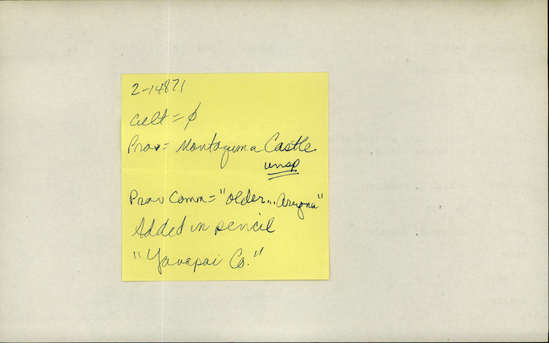 2-14871
Cult = ∅
Prov = Montazuma Castle
unsp
Prov Comm = "older... Arizona"
Added in pencil
"Yavapai Co."